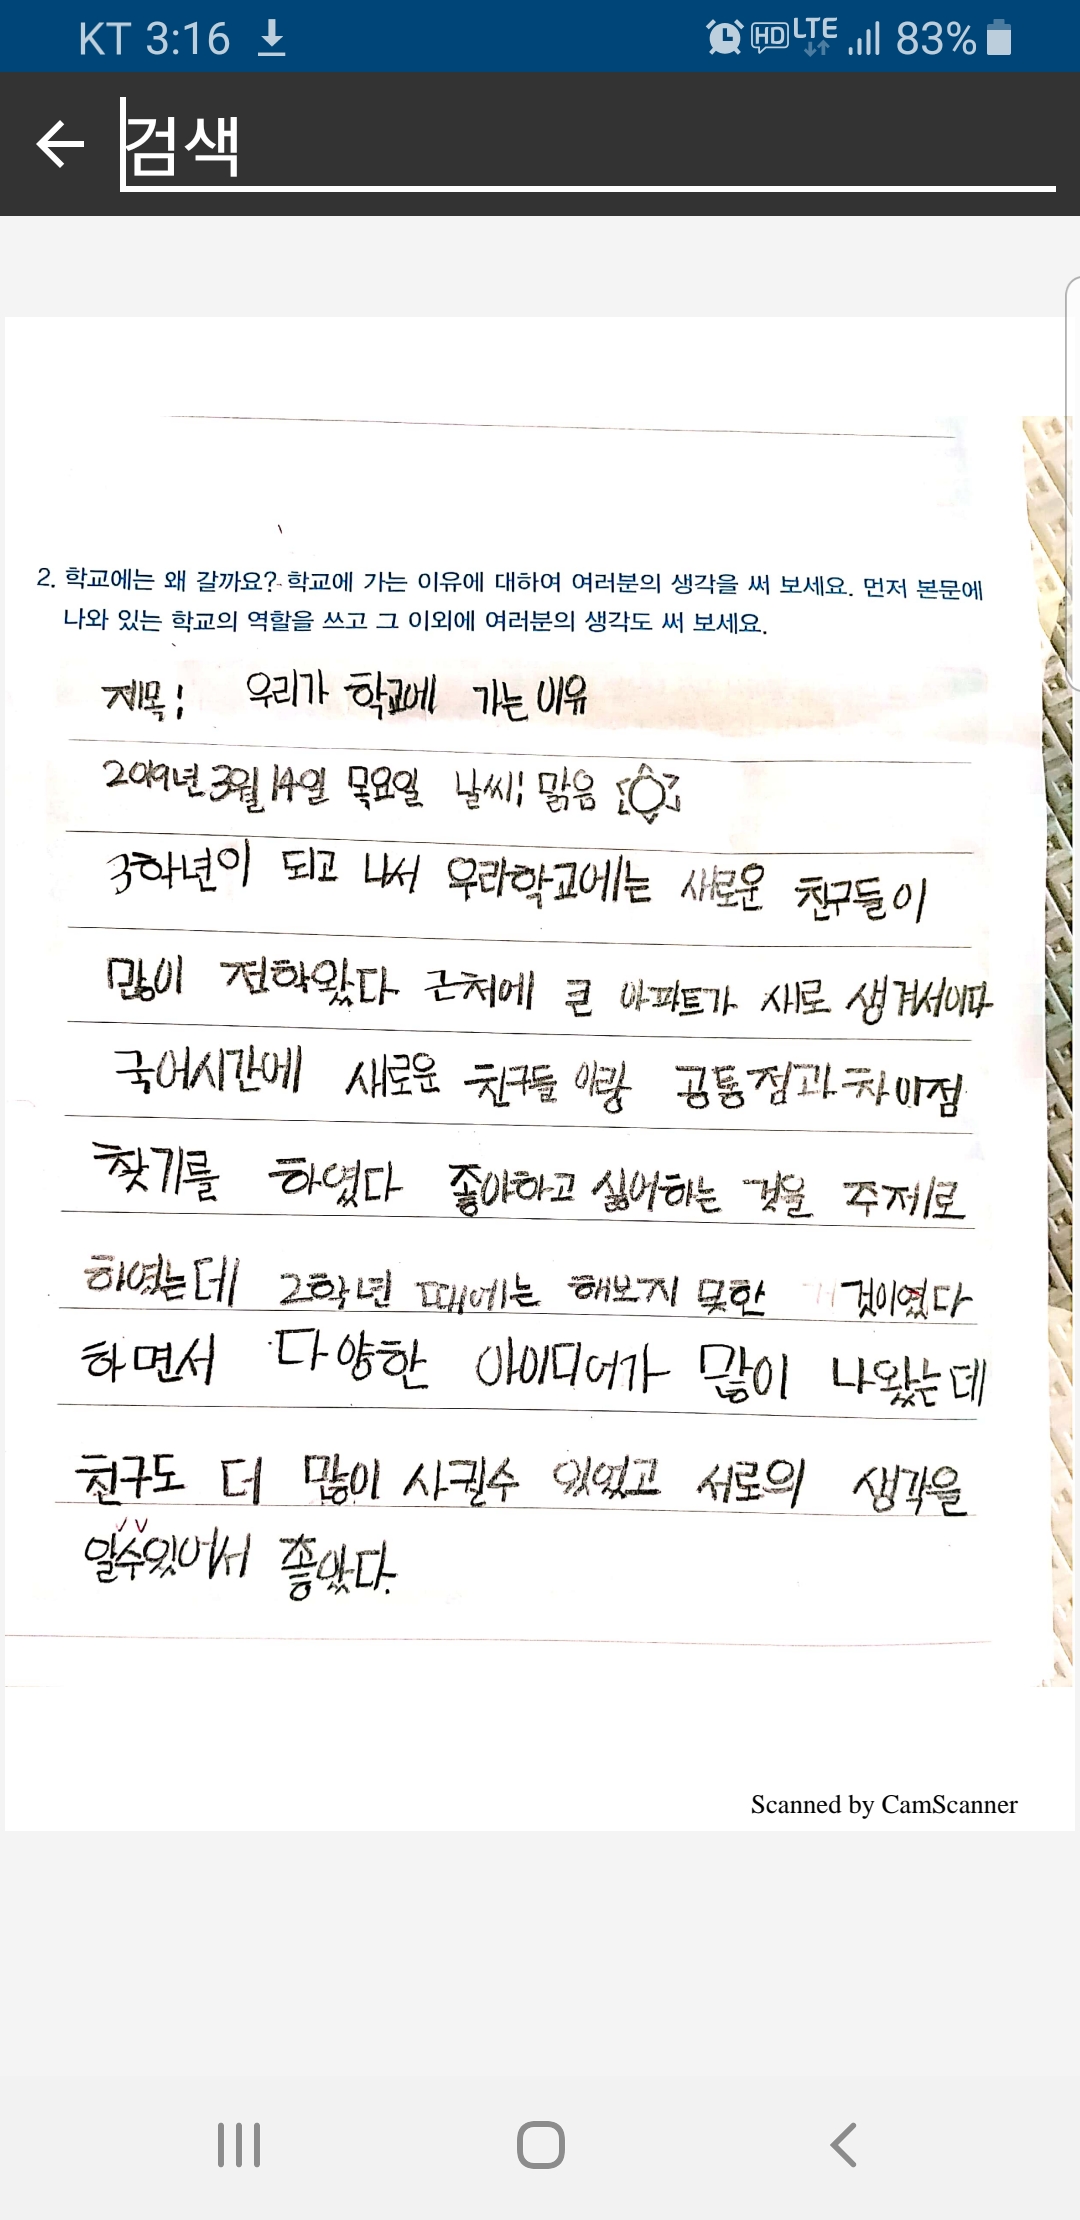 KT 3:16 HD LTE 83%
검색
2. 학교에는 왜 갈까요? 학교에 가는 이유에 대하여 여러분의 생각을 써 보세요. 먼저 본문에
나와 있는 학교의 역할을 쓰고 그 이외에 여러분의 생각도 써 보세요.
제목: 우리가 학교에 가는 이유
2019년 3월 14일 목요일 날씨: 맑음
3학년이 되고 나서 우리학교에는 새로운 친구들이
많이 전학왔다 근처에 큰 아파트가 새로 생겨서이다
국어시간에 새로운 친구들 이랑 공통점과 차이점
찾기를 하였다 좋아하고 싫어하는 것을 주제로
하였는데 2학년 때에는 해보지 못한 것이였다
하면서 다양한 아이디어가 많이 나왔는데
친구도 더 많이 사귈수 있었고 서로의 생각을
알수있어서 좋았다.
Scanned by CamScanner